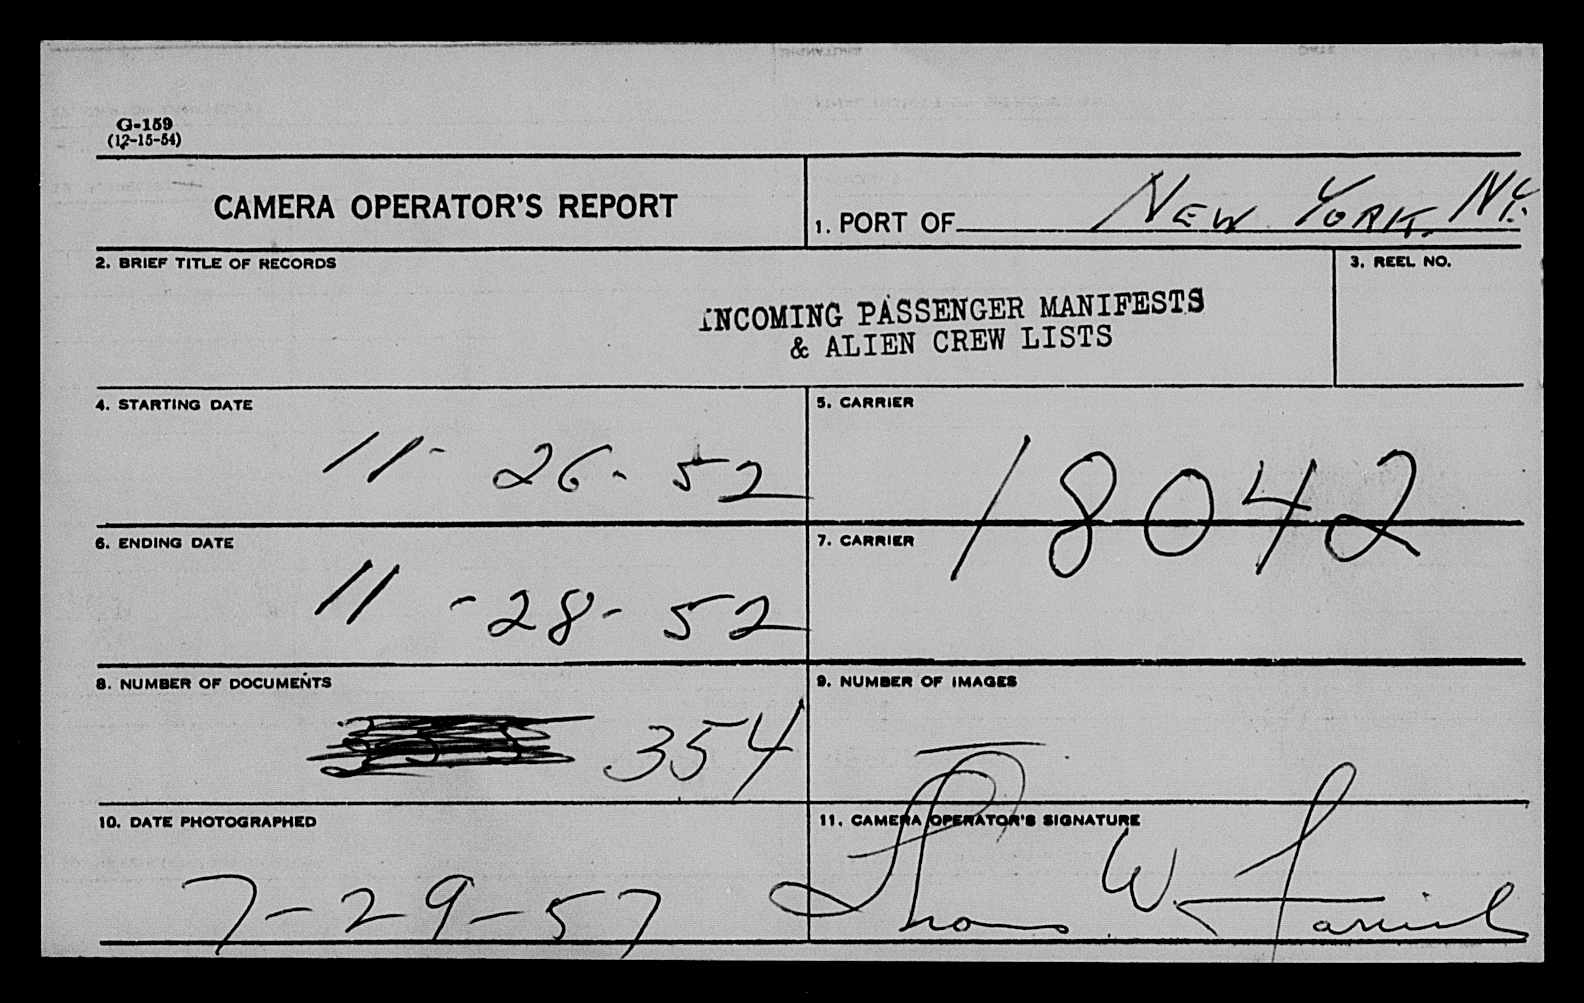 G-159
(12-15-54)
CAMERA OPERATOR'S REPORT
1. PORT OF NEW YORK, N.Y.
2. BRIEF TITLE OF RECORDS
INCOMING PASSENGER MANIFESTS
& ALIEN CREW LISTS
3. REEL NO.
4. STARTING DATE
11-26-52
5. CARRIER
18042
6. ENDING DATE
11-28-52
7. CARRIER
8. NUMBER OF DOCUMENTS
354
9. NUMBER OF IMAGES
10. DATE PHOTOGRAPHED
7-29-57
11. CAMERA OPERATOR'S SIGNATURE
Thomas W.